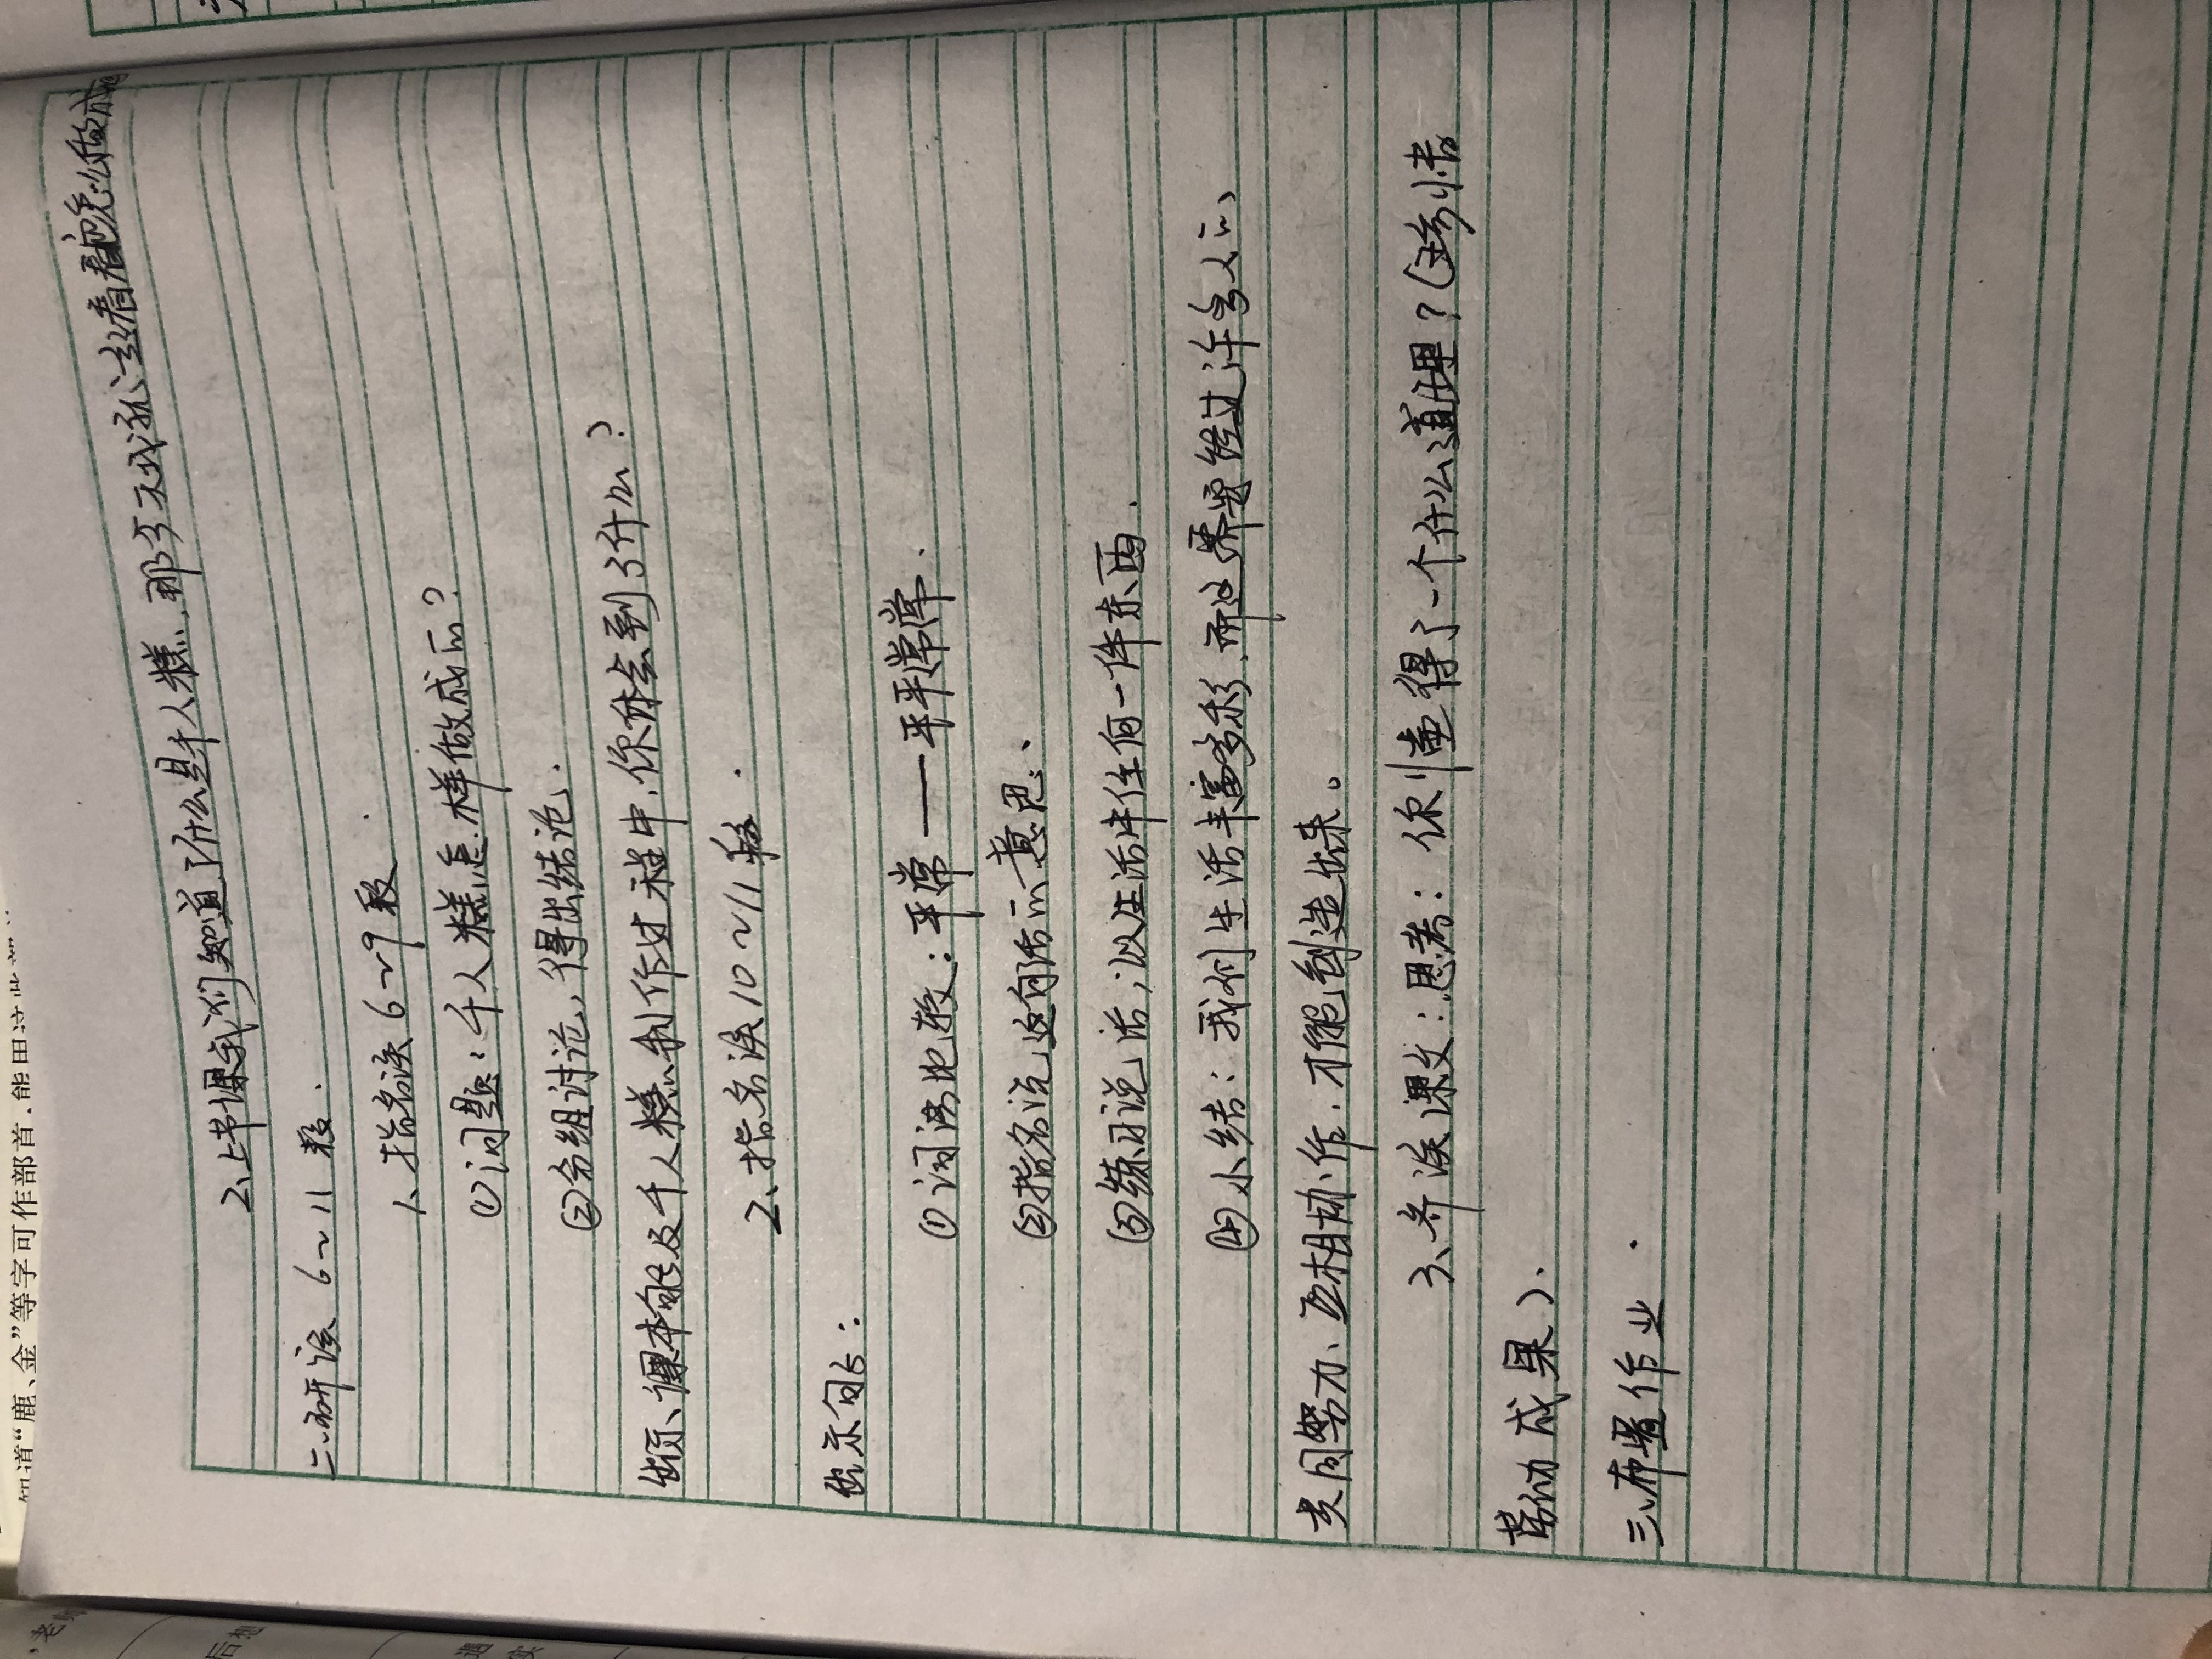 2、上节课我们知道了什么是千人糕，那今天我们就去看看它是怎么做成
二、研读6~11段．
1、指名读6~9段．
①问题：千人糕怎样做成的？
②分组讨论，得出结论．
出示、课本句段及千人糕制作过程中，你体会到了什么？
2、指名读10~11段．
出示句子：
①词语比较：平常——平平常常．
②指名说这句话的意思、
③练习说话，以生活中任何一件东西．
④小结：我们生活丰富多彩，而这界要经过许多人的、
共同努力、互相协作，才能创造出来。
3、齐读课文：思考：你懂得了一个什么道理？（珍惜
劳动成果）、
三、布置作业．
知道“鹿、金”等字可作部首，能用这些部